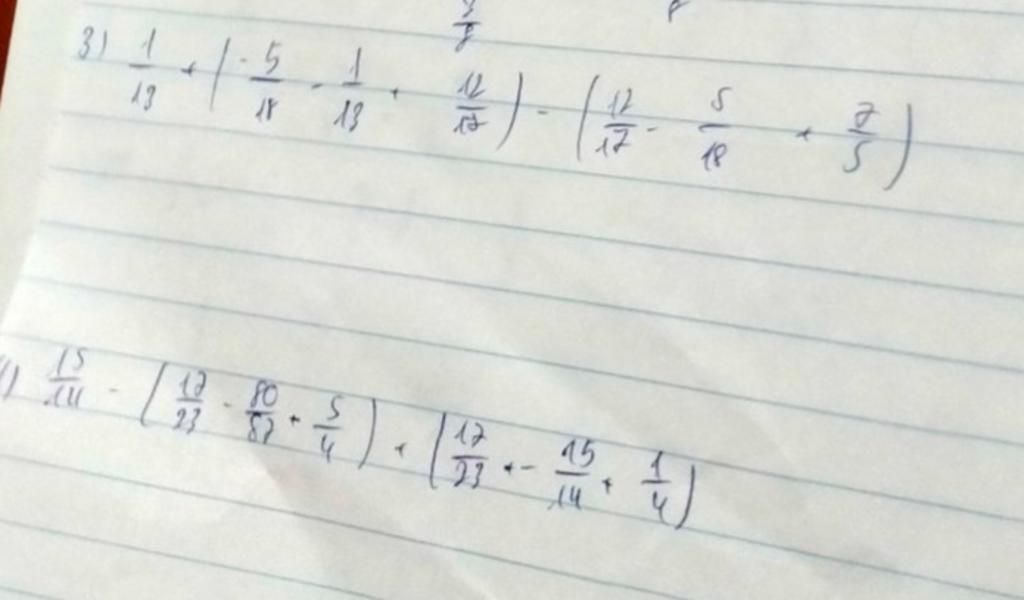 3) 1/13 + (-5/18 - 1/13 + 12/17) - (12/17 - 5/18 + 7/5)
15/14 - (17/23 - 80/87 + 5/4) + (17/23 + - 15/14 + 1/4)